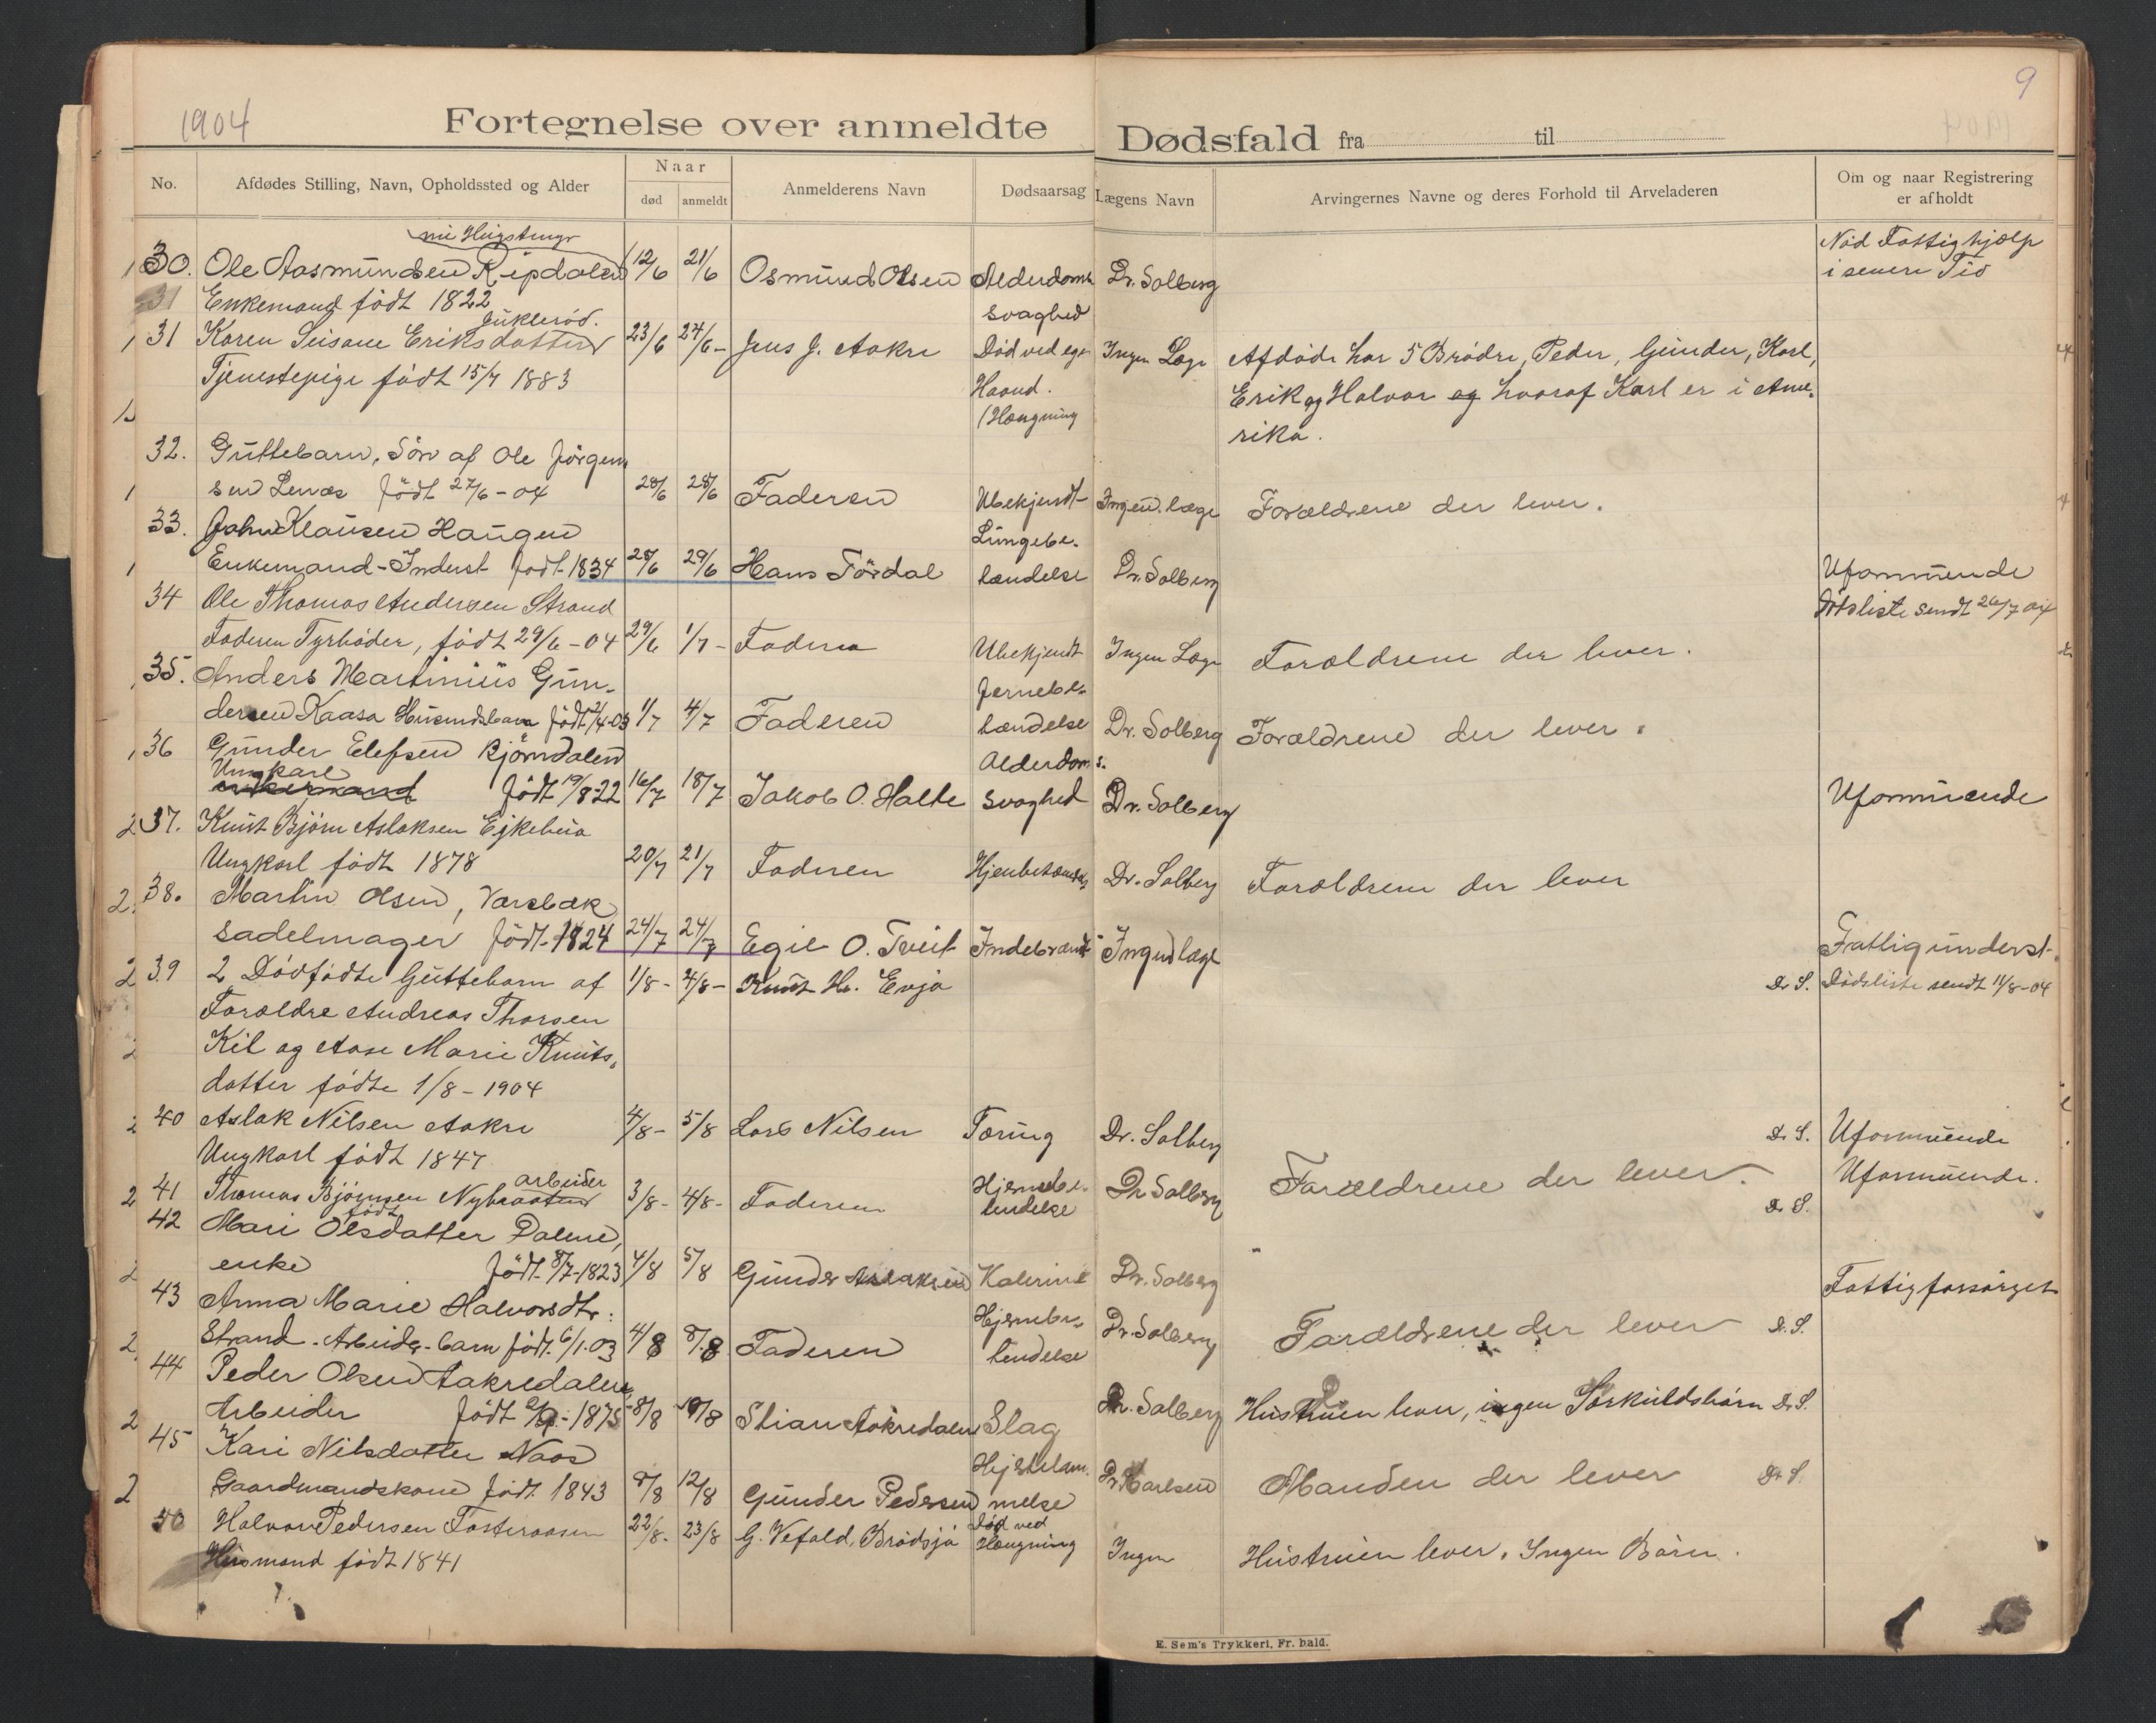 1904
9
Fortegnelse over anmeldte Dødsfald fra til
No. Afdødes Stilling, Navn, Opholdssted og Alder Naar død anmeldt Anmelderens Navn Dødsaarsag Lægens Navn Arvingernes Navne og deres Forhold til Arveladeren Om og naar Registrering er afholdt
30. Ole Aasmundsen Ripdalen 12/6 21/6 Osmund Olsen Alderdoms Dr. Solberg Nåd Fattighjælp
31 Enkemand födt 1822 svaghed i senere Tid
31 Karen Eriksdatter 23/6 24/6- Jens J. Aakre Död ved egen Ingen Læge Afdöde har 5 Brödre, Peder, Gunder, Karl,
Tjenestepige födt 15/7 1883 Haand. Erik og Halvor og hvoraf Karl er i Ame-
(Hængning rika.
32. Guttebarn, Sön af Ole Jörgen
sen Lenæs födt 27/6-04 28/6 28/6 Faderen Ubekjendt Ingen læge Forældrene der lever.
33. John Klausen Haugen Lungebe-
Enkemand-Inderst födt 1834 28/6 29/6 Hans Fördal tændelse Dr. Solberg Uformuende
34 Ole Thomas Andersen Strand sendt 26/7 04
Faderen Fyrböder, födt 29/6-04 29/6 1/7- Faderen Ubekjendt Ingen Læge Forældrene der lever.
35. Anders Martinius Gun- Jernebe-
dersen Kaasa Husmdsbarn födt 2/4-03 1/7 4/7 Faderen tændelse Dr. Solberg Forældrene der lever.
36 Gunder Elefsen Björndalen Alderdoms.
Ungkarl enkemand födt 19/8-22 16/7 18/7 Jakob O. Halte svaghed Dr. Solberg Uformuende
37. Knut Björn Aslaksen Ejkebua
Ungkarl födt 1878 20/7 21/7 Faderen Dr. Solberg Forældrene der lever
38. Martin Olsen, Varsbæk
sadelmager födt 1824 24/7 24/7 Egil O. Tveit Indebrændt Ingen læge Fattigunderst.
39 2 Dödfödte Guttebarn af 1/8- 4/8- Knut H. Evja D. S. Dödsliste sendt 11/8-04
Forældre Andreas Thorsen
Kil og Aase Marie Knuts-
datter födte 1/8-1904
40 Aslak Nilsen Aakre 4/8- 5/8 Lars Nilsen Tæring Dr. Solberg D. S. Uformuende
Ungkarl födt 1847
arbeider
41 Thomas Björnsen Nybraaten 3/8- 4/8- Faderen Hjernebe- Dr Solberg Forældrene der lever. Uformuende.
födt tendelse D. S.
42 Mari Olsdatter Dalene,
enke födt 8/7-1823 4/8 5/8 Gunder Aslaksen Dr. Solberg Fattigforsörget
43 Anna Marie Halvorsdtr: Hjernebe-
Strand. Arbeider-barn födt 6/1.03 4/8 8/8 Faderen tendelse Dr. Solberg Forældrene der lever D. S.
44 Peder Olsen Aakredalen,
Arbeider födt 1875 8/8 10/8 Stian Aakredalen Slag Dr. Solberg Hustruen lever, ingen Særkuldsbörn D. S.
45 Kari Nilsdatter Naas Hjertelam-
Gaardmandskone födt 1843 8/8 12/8 Gunder Pedersen melse Dr Karlsen Manden der lever D. S.
Död ved
Halvor Pedersen Fosteraasen 22/8- 23/8 G. Vefald, Brödsjö Hængning Ingen Hustruen lever. Ingen Börn.
Husmand födt 1841
E. Sem's Trykkeri, Fr. hald.